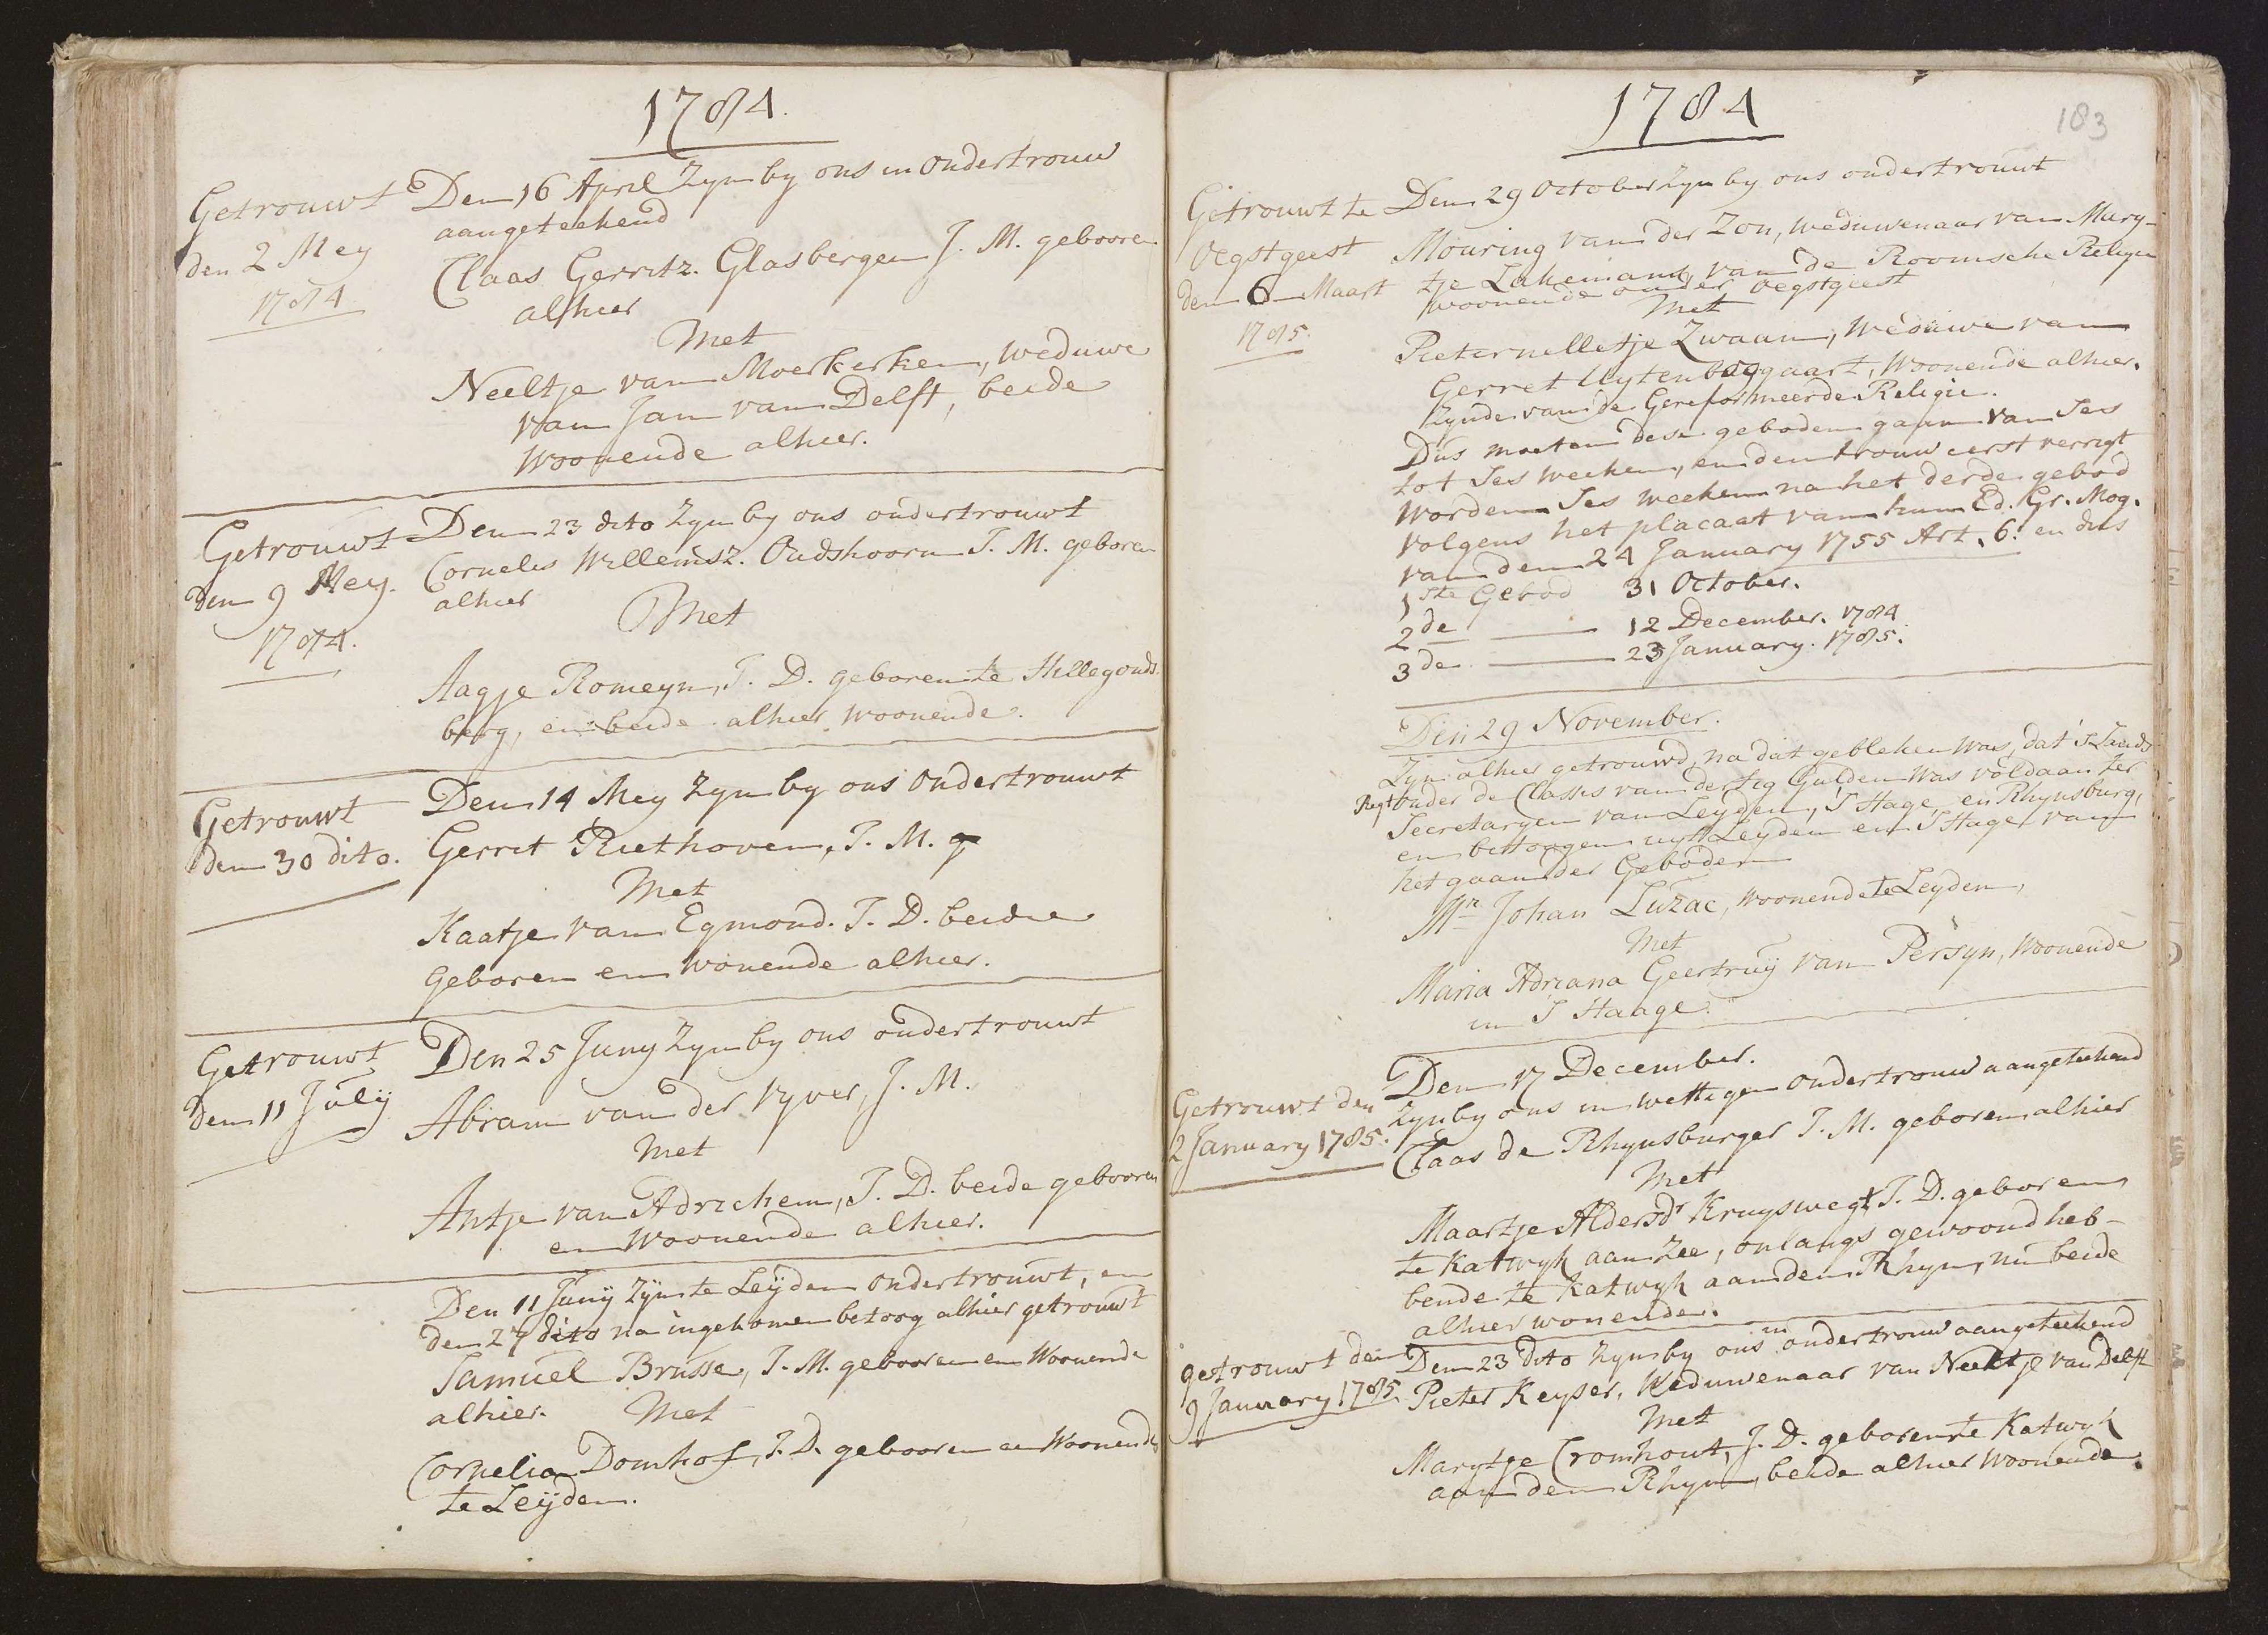 1784.
Getrouwt
den 2 Mey
1784
Den 16 April Zyn by ons in ondertrouw
aangeteekend
Claas Gerritz. Glasbergen J. M. gebooren
alhier
Met
Neeltje van Moerkerken, weduwe
van Jan van Delft, beide
Woonende alhier.
Getrouwt
den 9 Mey.
1784.
Den 23 dito Zyn by ons ondertrouwt
Cornelis Willemsz. Oudshoorn J. M. geboren
alhier
Met
Aagje Romeyn, J. D. geboren te Hillegonds
berg, en beide alhier woonende.
Getrouwt
den 30 dito.
Den 14 Mey Zyn by ons ondertrouwt
Gerrit Riethoven, J. M. g
Met
Kaatje van Egmond. J. D. beide
Geboren en wonende alhier.
Getrouwt
den 11 July
Den 25 Juny Zyn by ons ondertrouwt
Abram van der Vyver, J. M.
Met
Antje van Adrichem, J. D. beide gebooren
en Woonende alhier.
Den 11 Juny Zyn te Leyden ondertrouwt, en
den 27 dito na ingekomen betoog alhier getrouwt
Samuel Brusse, J. M. gebooren en Woonende
alhier. Met
Cornelia Domhof, J. D. gebooren en Woonende
te Leyden.
1784
183
Getrouwt te
Oegstgeest
den 6 Maart
1785.
Den 29 October Zyn by ons ondertrouwt
Mouring van der Zon, weduwenaar van Mary-
tje Lakeman, van de Roomsche Religie
woonende onder Oegstgeest
Met
Pieternelletje Zwaan, Weduwe van
Gerret Uytenboggaart, Woonende alhier.
Zynde van de Gereformeerde Religie.
Dus moeten dese geboden gaan van Ses
tot Ses weeken, en den trouw eerst verrigt
worden Ses weeken na het derde gebod
volgens het placaat van hun Ed. Gr. Mog.
van den 24 January 1755 Art. 6. en dus
1ste Gebod 31 October.
2de — 12 December. 1784
3de — 23 January. 1785.
Den 29 November.
Zyn alhier getrouwd, na dat gebleken was, dat 's Lands
Regt onder de Classis van dertig Gulden was voldaan ter
Secretaryen van Leyden, 's Hage, en Rhynsburg,
en betoogen uyt Leyden en 's Hage van
het gaan der Geboden
Mr. Johan Luzac, woonende te Leyden,
Met
Maria Adriana Geertruy van Persyn, Woonende
in 's Haage.
Getrouwt den
2 January 1785.
Den 17 December.
Zyn by ons in wettigen ondertrouw aangeteekend
Claas de Rhynsburger J. M. geboren alhier
Met
Maartje Aldersdr Kruyswegt J. D. geboren
te Katwyk aan Zee, onlangs gewoond heb-
bende te Katwyk aan den Rhyn, nu beide
alhier wonende.
getrouwt den
9 January 1785.
Den 23 dito Zyn by ons in ondertrouw aangeteekend
Pieter Keyser, Weduwenaar van Neeltje van Delft
Met
Marytje Cromhout, J. D. geboren te Katwyk
aan den Rhyn, beide alhier Woonende.